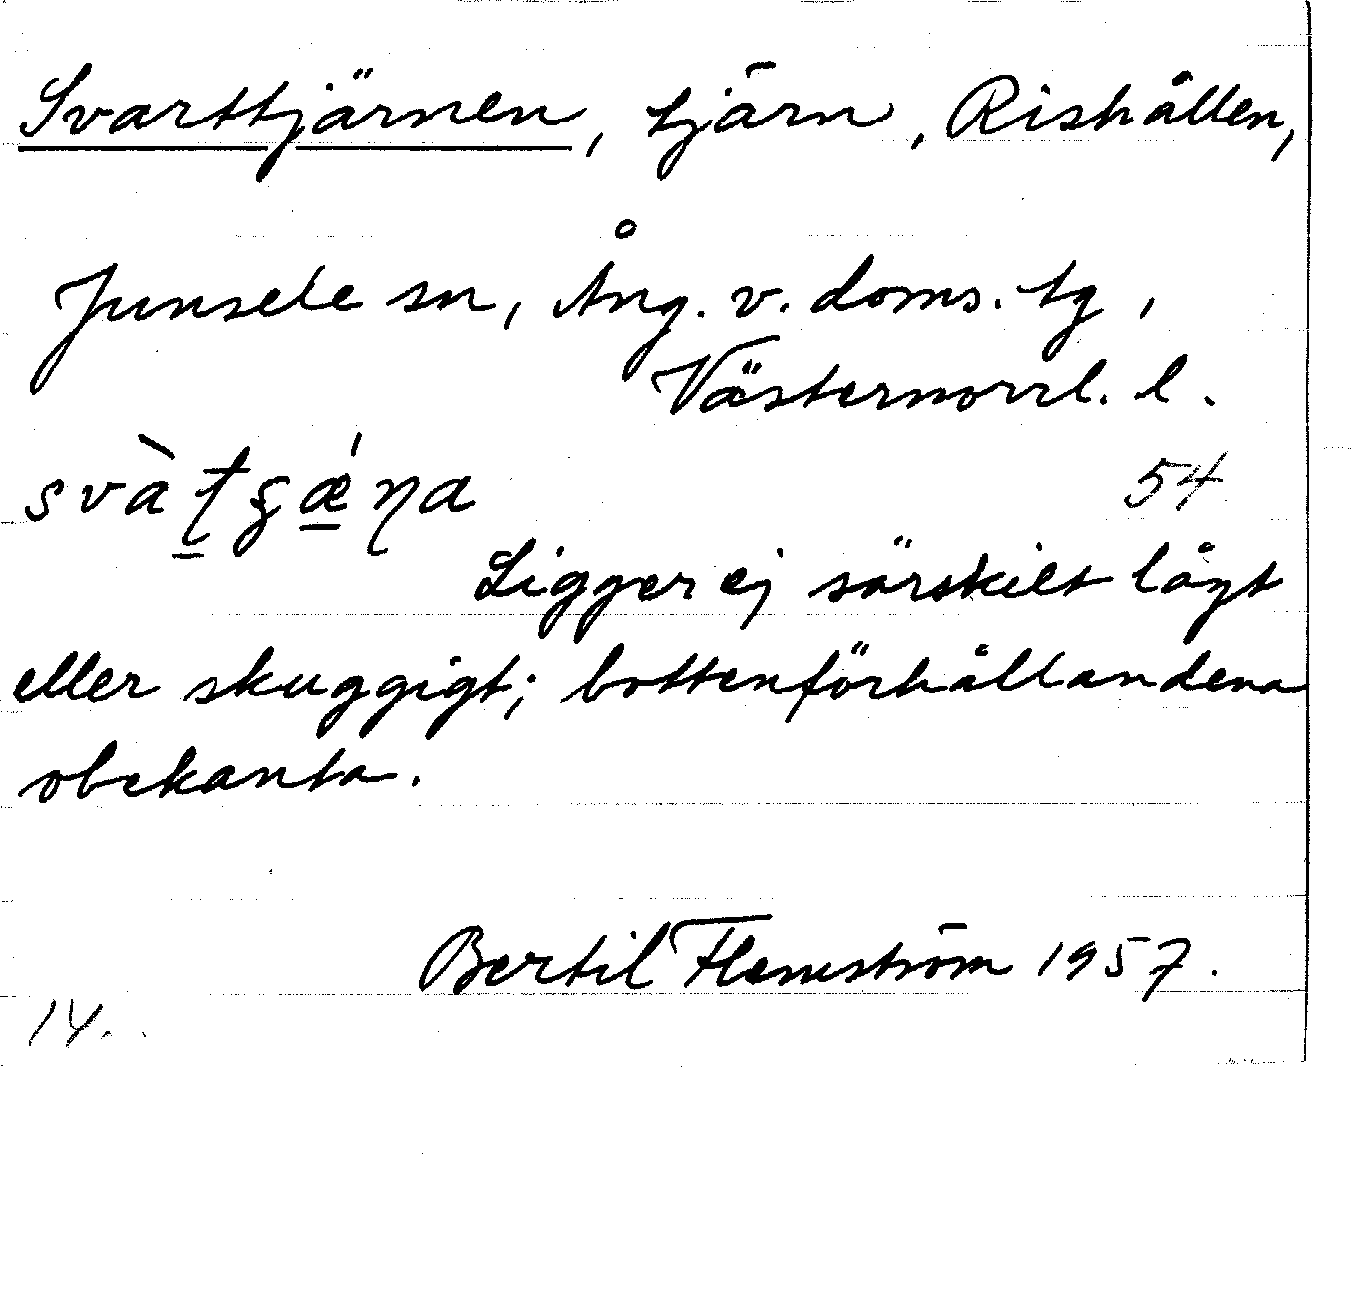 Svarttjärnen, tjärn, Rishållen,
Junsele sn, Ång. v. doms. tg,
Västernorrl. l.
svàʈʂǽɳa
54
Ligger ej särskilt lågt
eller skuggigt; bottenförhållandena
obekanta.
Bertil Flemström 1957.
14.